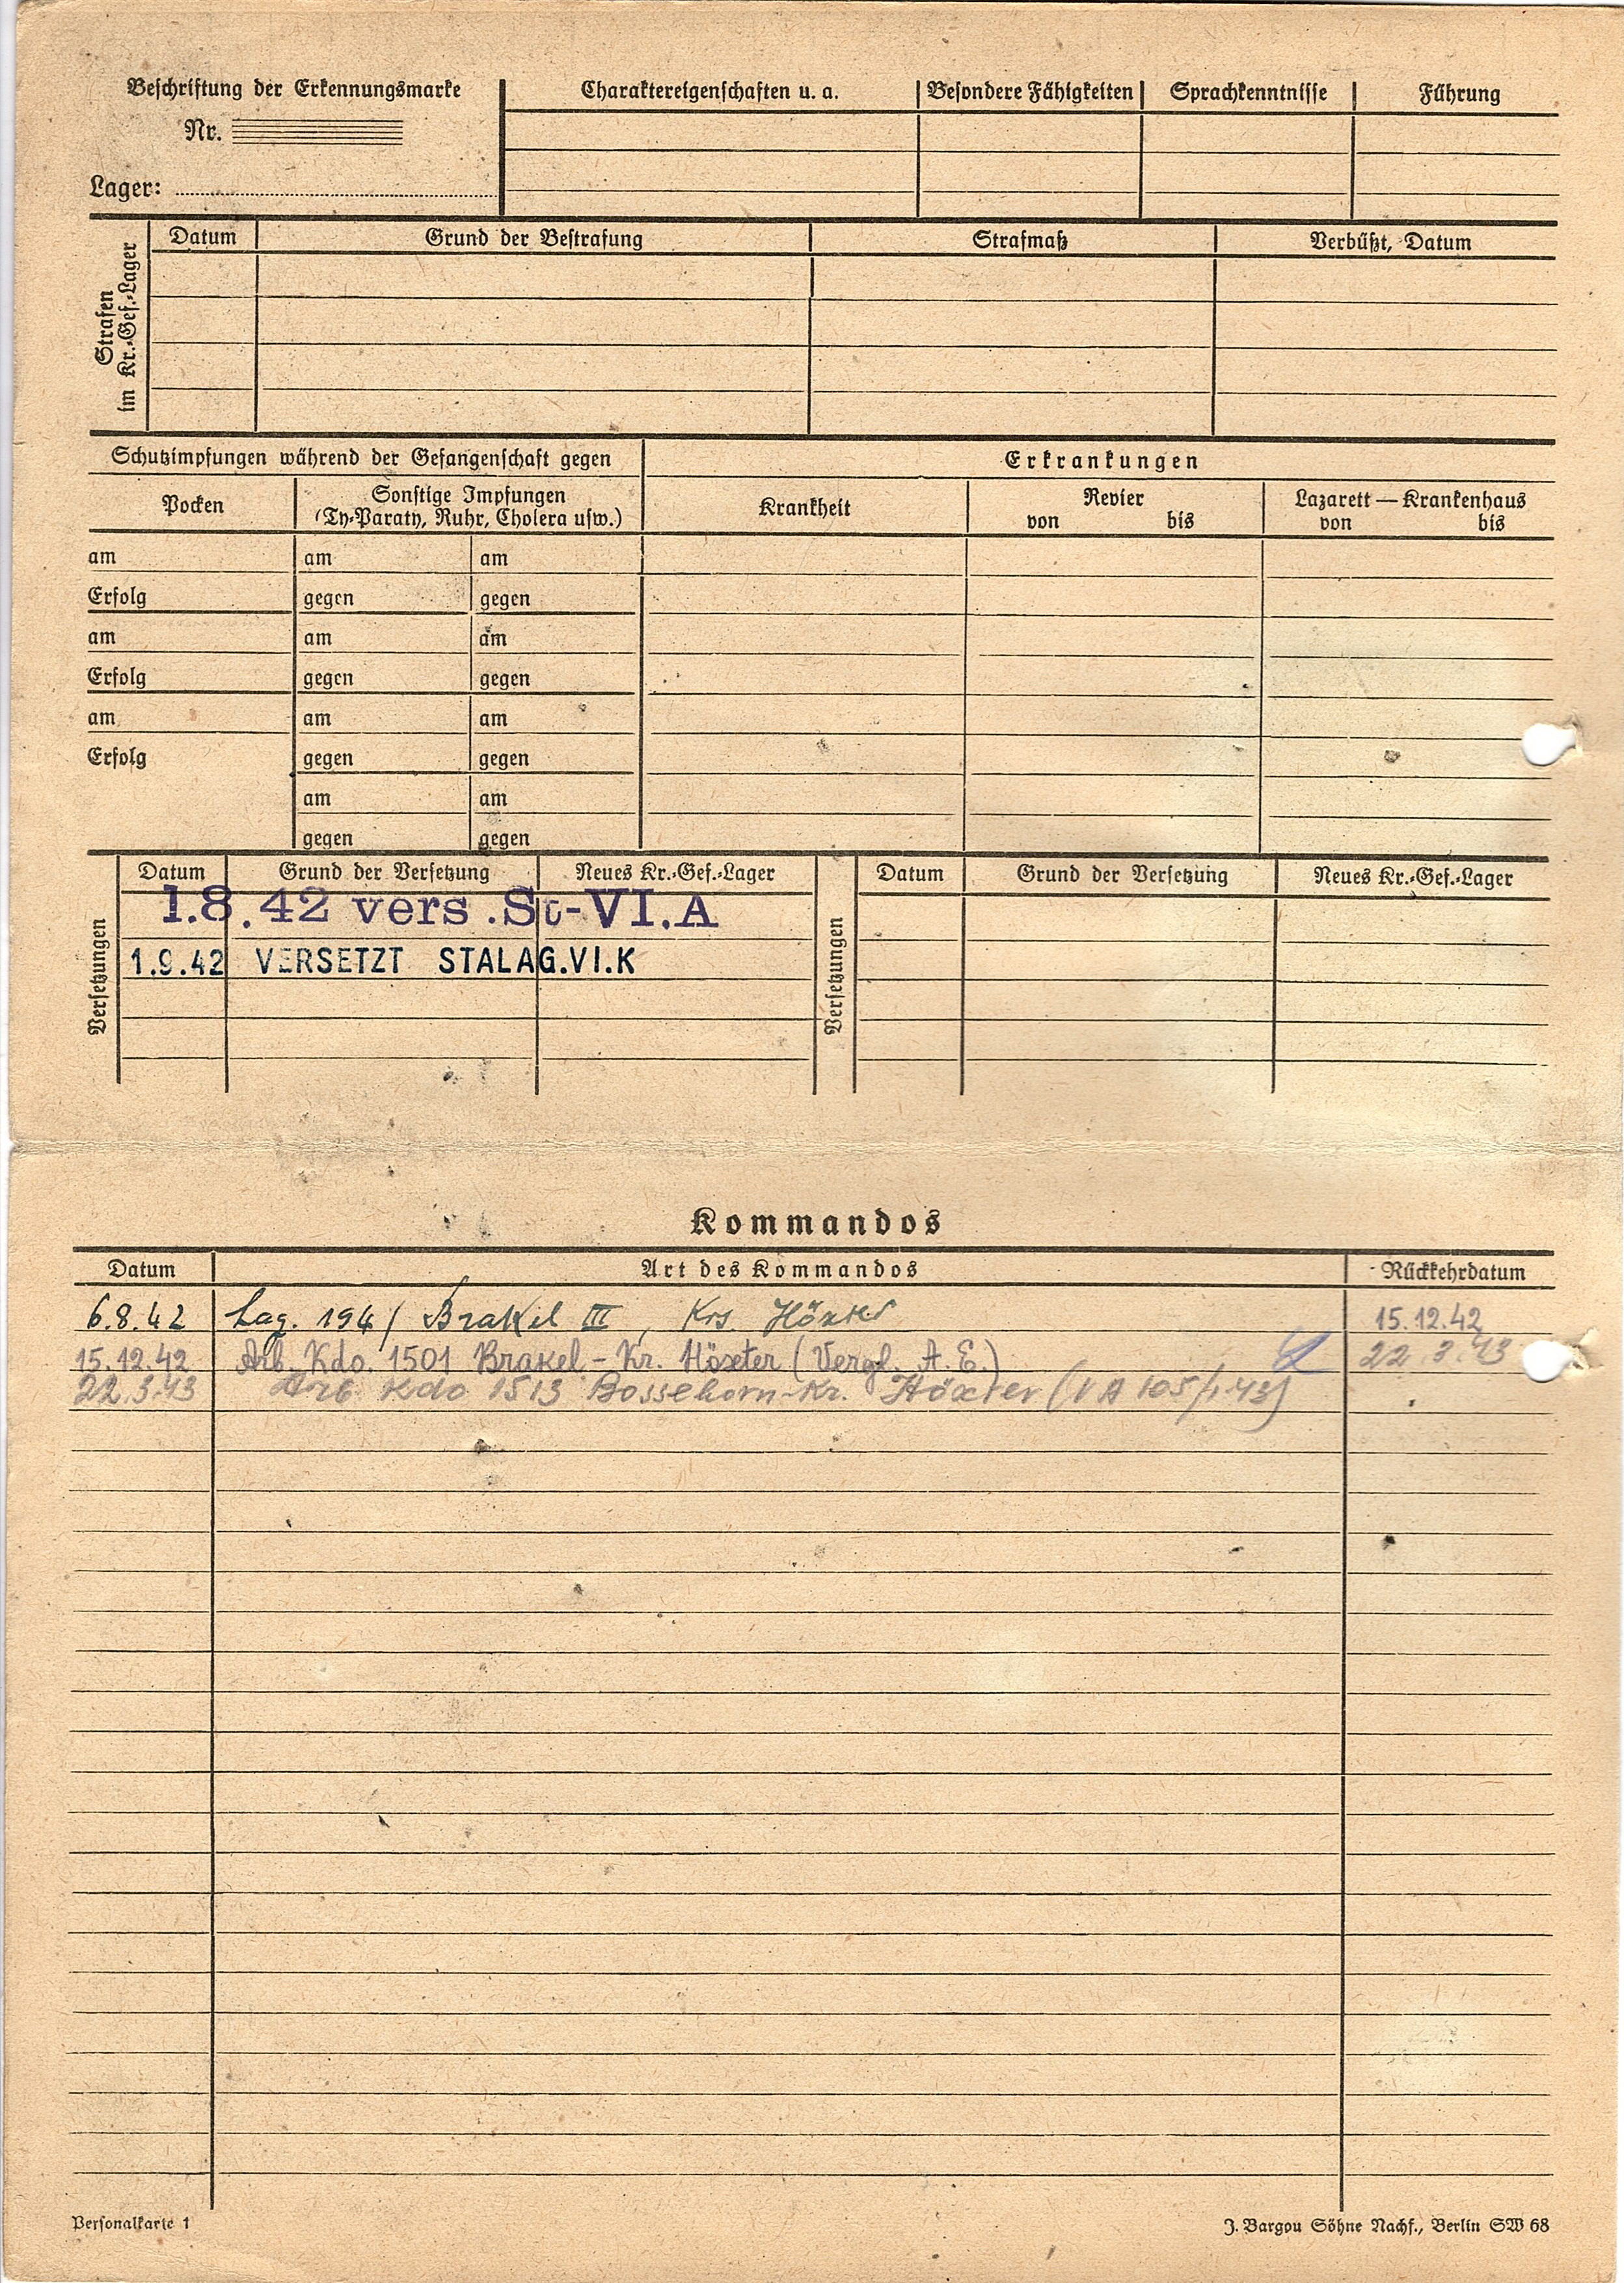 Beschriftung der Erkennungsmarke
Nr.
Lager:
Charaktereigenschaften u. a. Besondere Fähigkeiten Sprachkenntnisse Führung
Strafen
im Kr.-Gef.-Lager
Datum Grund der Bestrafung Strafmaß Verbüßt, Datum
Schutzimpfungen während der Gefangenschaft gegen
Erkrankungen
Pocken
Sonstige Impfungen
(Ty-Paraty, Ruhr, Cholera usw.)
Krankheit
Revier
von bis
Lazarett — Krankenhaus
von bis
am am am
Erfolg gegen gegen
am am am
Erfolg gegen gegen
am am am
Erfolg gegen gegen
am am
gegen gegen
Versetzungen
Datum Grund der Versetzung Neues Kr.-Gef.-Lager
1.8.42 vers. St-VI.A
1.9.42 VERSETZT STALAG.VI.K
Versetzungen
Datum Grund der Versetzung Neues Kr.-Gef.-Lager
Kommandos
Datum Art des Kommandos Rückkehrdatum
6.8.42 Lag. Brakel III, Krs. Höxter 15.12.42
15.12.42 Arb. Kdo. 1501 Brakel - Kr. Höxeter (Vergl. A. E.) 22.3.43
22.3.43 Arb Kdo 1513 Bosseborn-Kr. Höxter
Personalkarte 1
J. Bargou Söhne Nachf., Berlin SW 68